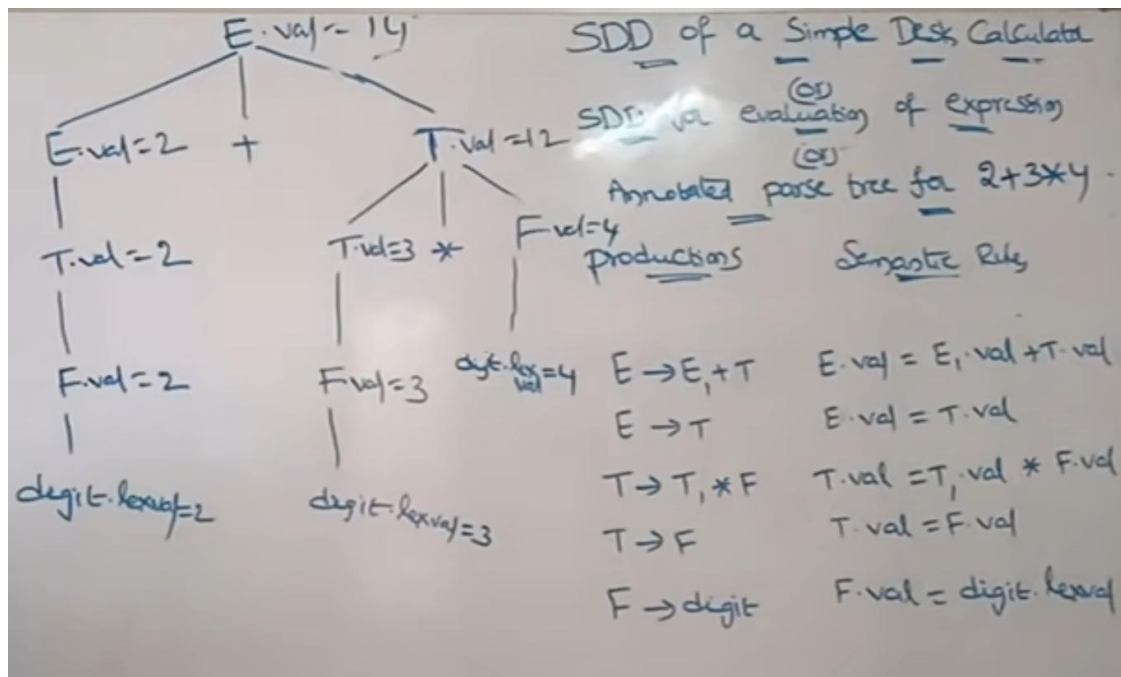 E.val = 14
E.val=2 + T.val=12
T.val=2 T.val=3 * F.val=4
F.val=2 F.val=3 digit.lexval=4
digit.lexval=2 digit.lexval=3
SDD of a Simple Desk Calculator
(or)
SDD for evaluation of expression
(or)
Annotated parse tree for 2+3*4.
Productions Semantic Rules
E → E₁ + T E.val = E₁.val + T.val
E → T E.val = T.val
T → T₁ * F T.val = T₁.val * F.val
T → F T.val = F.val
F → digit F.val = digit.lexval